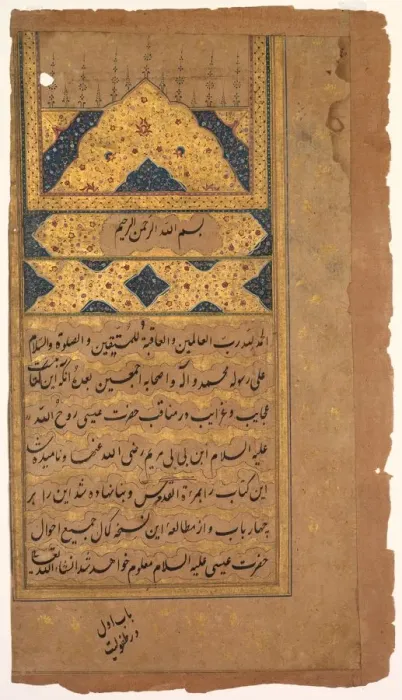 بسم الله الرحمن الرحیم
الحمد لله رب العالمین والعاقبة للمتقین والصلوة والسلام
علی رسوله محمد و آله و اصحابه اجمعین بعده آنکه این
عجایب و غرایب در مناقب حضرت عیسی روح الله
علیه السلام ابن بی بی مریم رضی الله عنها و نامیده شد
این کتاب را بمرءة القدوس و بنا نهاده شد این را بر
چهار باب و از مطالعه این نسخه کمال جمیع احوال
حضرت عیسی علیه السلام معلوم خواهد شد انشاء الله تعالی
باب اول
در طفولیت